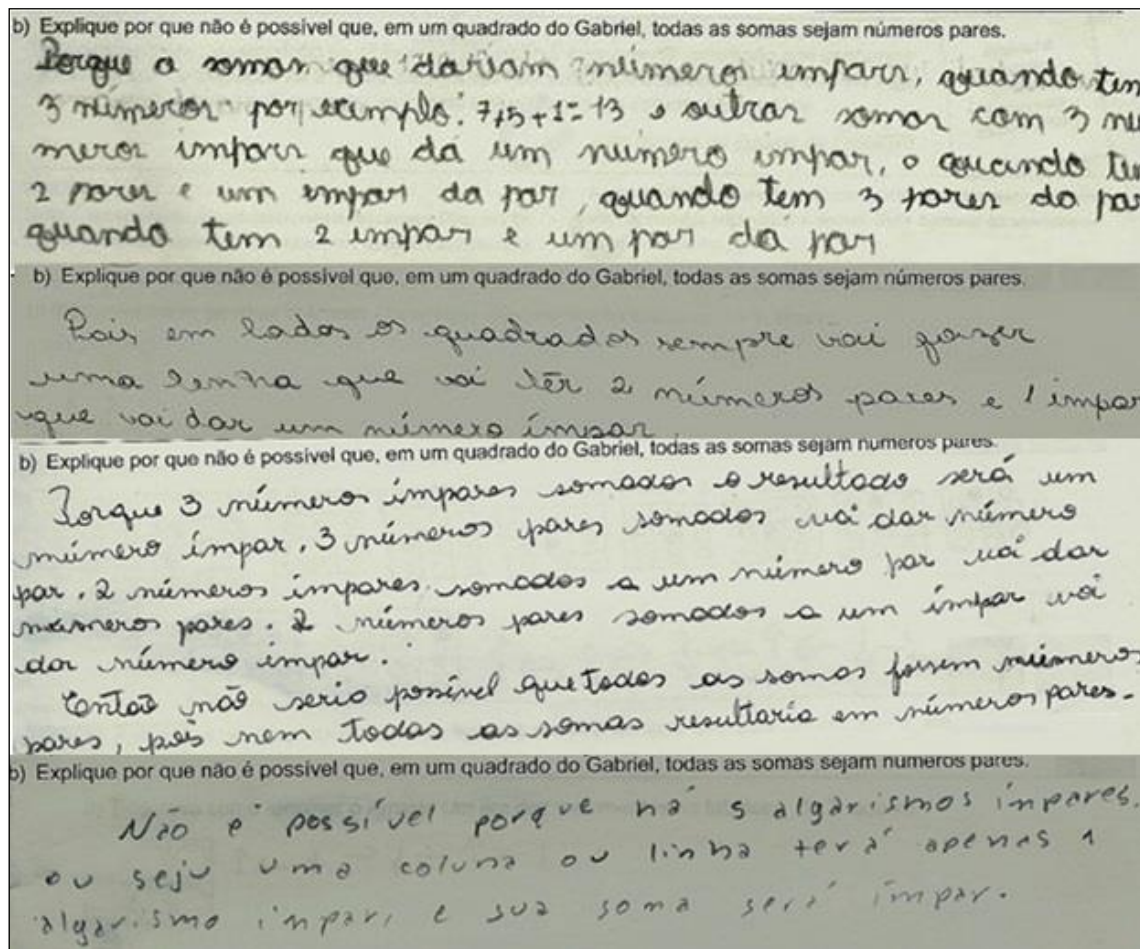 b) Explique por que não é possível que, em um quadrado do Gabriel, todas as somas sejam números pares.
Porque a somas que dariam números impars, quando tem
3 números por exemplo: 7+5+1=13 e outras somas com 3 nu
meros impars que da um numero impar, e quando te
2 pares e um impar da par, quando tem 3 pares da par
quando tem 2 impar e um par da par
b) Explique por que não é possível que, em um quadrado do Gabriel, todas as somas sejam números pares.
Pois em todos os quadrados sempre vai
uma linha que vai ter 2 números pares e 1 impar
que vai dar um número ímpar
b) Explique por que não é possível que, em um quadrado do Gabriel, todas as somas sejam números pares.
Porque 3 números ímpares somados o resultado será um
número ímpar. 3 números pares somados vai dar número
par. 2 números ímpares somados a um número par vai dar
números pares. 2 números pares somados a um ímpar vai
dar número ímpar.
Então não seria possível que todas as somas fossem números
pares, pois nem todas as somas resultaria em números pares.
b) Explique por que não é possível que, em um quadrado do Gabriel, todas as somas sejam números pares.
Não é possível porque há 5 algarismos ímpares.
ou seju uma coluna ou linha terá apenas 1
algarismo ímpar, e sua soma será ímpar.